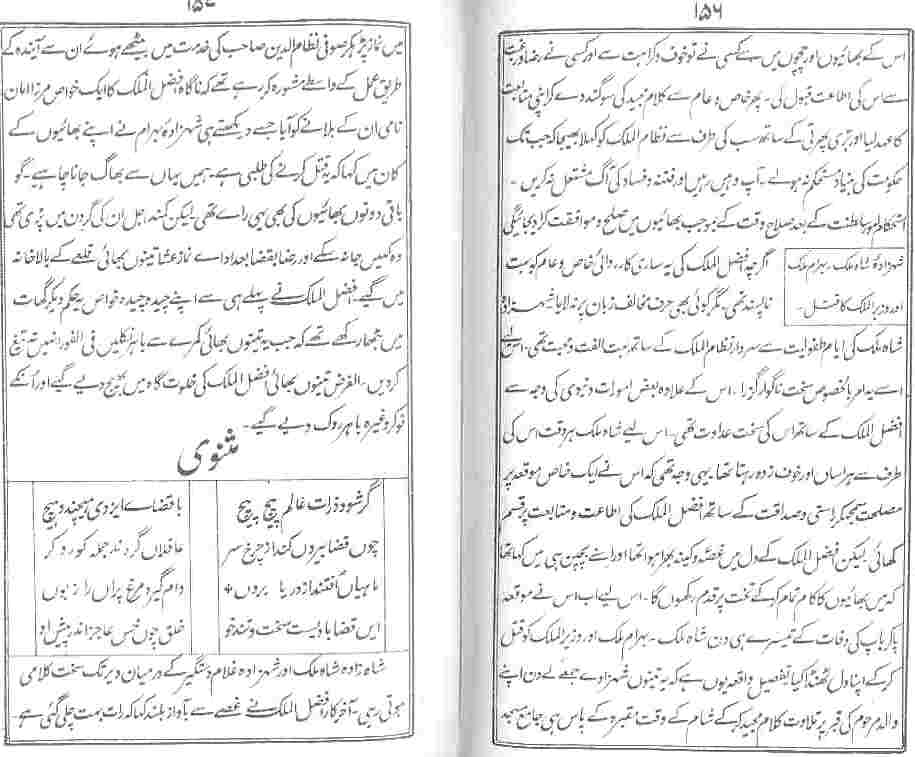 ۱۵۶
اس کے بھائیوں اور چچوں میں سے کسی نے تو خوف و کراہت سے اور کسی نے رضا و رغبت
سے اس کی اطاعت قبول کی۔ پھر خاص و عام سے کلام مجید کی سوگند دے کر اپنی متابعت
کا عہد لیا اور بڑی پھرتی کے ساتھ سب کی طرف سے نظام الملک کو کہلا بھیجا کہ جب تک
حکومت کی بنیاد مستحکم نہ ہولے۔ آپ وہیں رہیں اور فتنہ و فساد کی آگ مشتعل نہ کریں۔
استحکام امور سلطنت کے بعد صلاح وقت کے بموجب بھائیوں میں صلح و موافقت کرا دیجائیگی
شہزادۂ شاہ ملک۔ بہرام ملک
اور وزیر الملک کا قتل۔
اگرچہ افضل الملک کی یہ ساری کارروائی خاص و عام کو بہت
ناپسند تھی۔ مگر کوئی بھی حرف مخالف زبان پر نہ لایا شہزادہ
شاہ ملک کی ایام طفولیت سے سردار نظام الملک کے ساتھ بہت الفت و محبت تھی۔ اس لیے
اسے یہ امر بالخصوص سخت ناگوار گزرا۔ اس کے علاوہ بعض امورات دنیوی کی وجہ سے
افضل الملک کے ساتھ اس کی سخت عداوت تھی۔ اس لیے شاہ ملک ہر وقت اس کی
طرف سے ہراساں اور خوف زدہ رہتا تھا۔ یہی وجہ تھی کہ اس نے ایک خاص موقعہ پر
مصلحت سمجھ کر راستی و صداقت کے ساتھ افضل الملک کی اطاعت و متابعت پر قسم
کھائی۔ لیکن افضل الملک کے دل میں غصہ و کینہ بھرا ہوا تھا اور اپنے بچپن ہی میں کہا تھا
کہ میں بھائیوں کا کام تمام کر کے تخت پر قدم رکھوں گا۔ اس لیے اب اس نے موقعہ
پا کر باپ کی وفات کے تیسرے ہی دن شاہ ملک۔ بہرام ملک اور وزیر الملک کو قتل
کر کے اپنا دل ٹھنڈا کیا تفصیل واقعہ یوں ہے کہ یہ تینوں شہزادے جمعے کے دن اپنے
والد مرحوم کی قبر پر تلاوت کلام مجید کر کے شام کے وقت مقبرہ کے پاس ہی جامع مسجد
۱۵۷
میں نماز پڑھ کر صوفی نظام الدین صاحب کی خدمت میں بیٹھے ہوئے ان سے آیندہ کے
طریق عمل کے واسطے مشورہ کر رہے تھے کہ ناگاہ افضل الملک کا ایک خواص مرزا امان
نامی ان کے بلانے کو آیا جسے دیکھتے ہی شہزادۂ بہرام نے اپنے بھائیوں کے
کان میں کہا کہ یہ قتل کرنے کی طلبی ہے۔ ہمیں یہاں سے بھاگ جانا چاہیے۔ گو
باقی دونوں بھائیوں کی بھی یہی رائے تھی لیکن کمند اجل ان کی گردن میں پڑی تھی
وہ کہیں جا نہ سکے اور رضا بقضا بعد ادائے نماز عشا تینوں بھائی قلعے کے بالاخانہ
میں گیے۔ افضل الملک نے پہلے ہی سے اپنے چیدہ چیدہ خواص یہ حکم دیکر گھات
میں بٹھا رکھے تھے کہ جب یہ تینوں بھائی کمرے سے باہر نکلیں فی الفور انہیں تہ تیغ
کر دیں۔ الغرض تینوں بھائی افضل الملک کی خلوت گاہ میں بھیج دیے گیے اور انکے
نوکر وغیرہ باہر روک دیے گیے۔
مثنوی
گر شود ذرات عالم پیچ پیچ
با قضائے ایزدی ہیچند و ہیچ
چوں قضا بیروں کند از چرخ سر
عاقلاں گردند جملہ کور و کر
ماہیاں افتند از دریا بروں
دام گیرد مرغ پراں را زبوں
ایں قضا بادیست سخت و تند خو
خلق چوں خس عاجز اندر پیش او
شاہزادہ شاہ ملک اور شہزادہ غلام دستگیر کے درمیان دیر تک سخت کلامی
ہوتی رہی۔ آخر کار افضل الملک نے غصے سے بآواز بلند کہا کہ رات بہت چلی گئی ہے۔